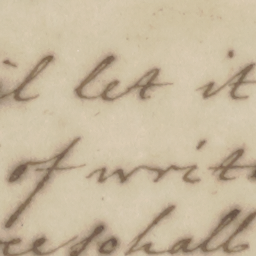 il let it
of writ
ce shall